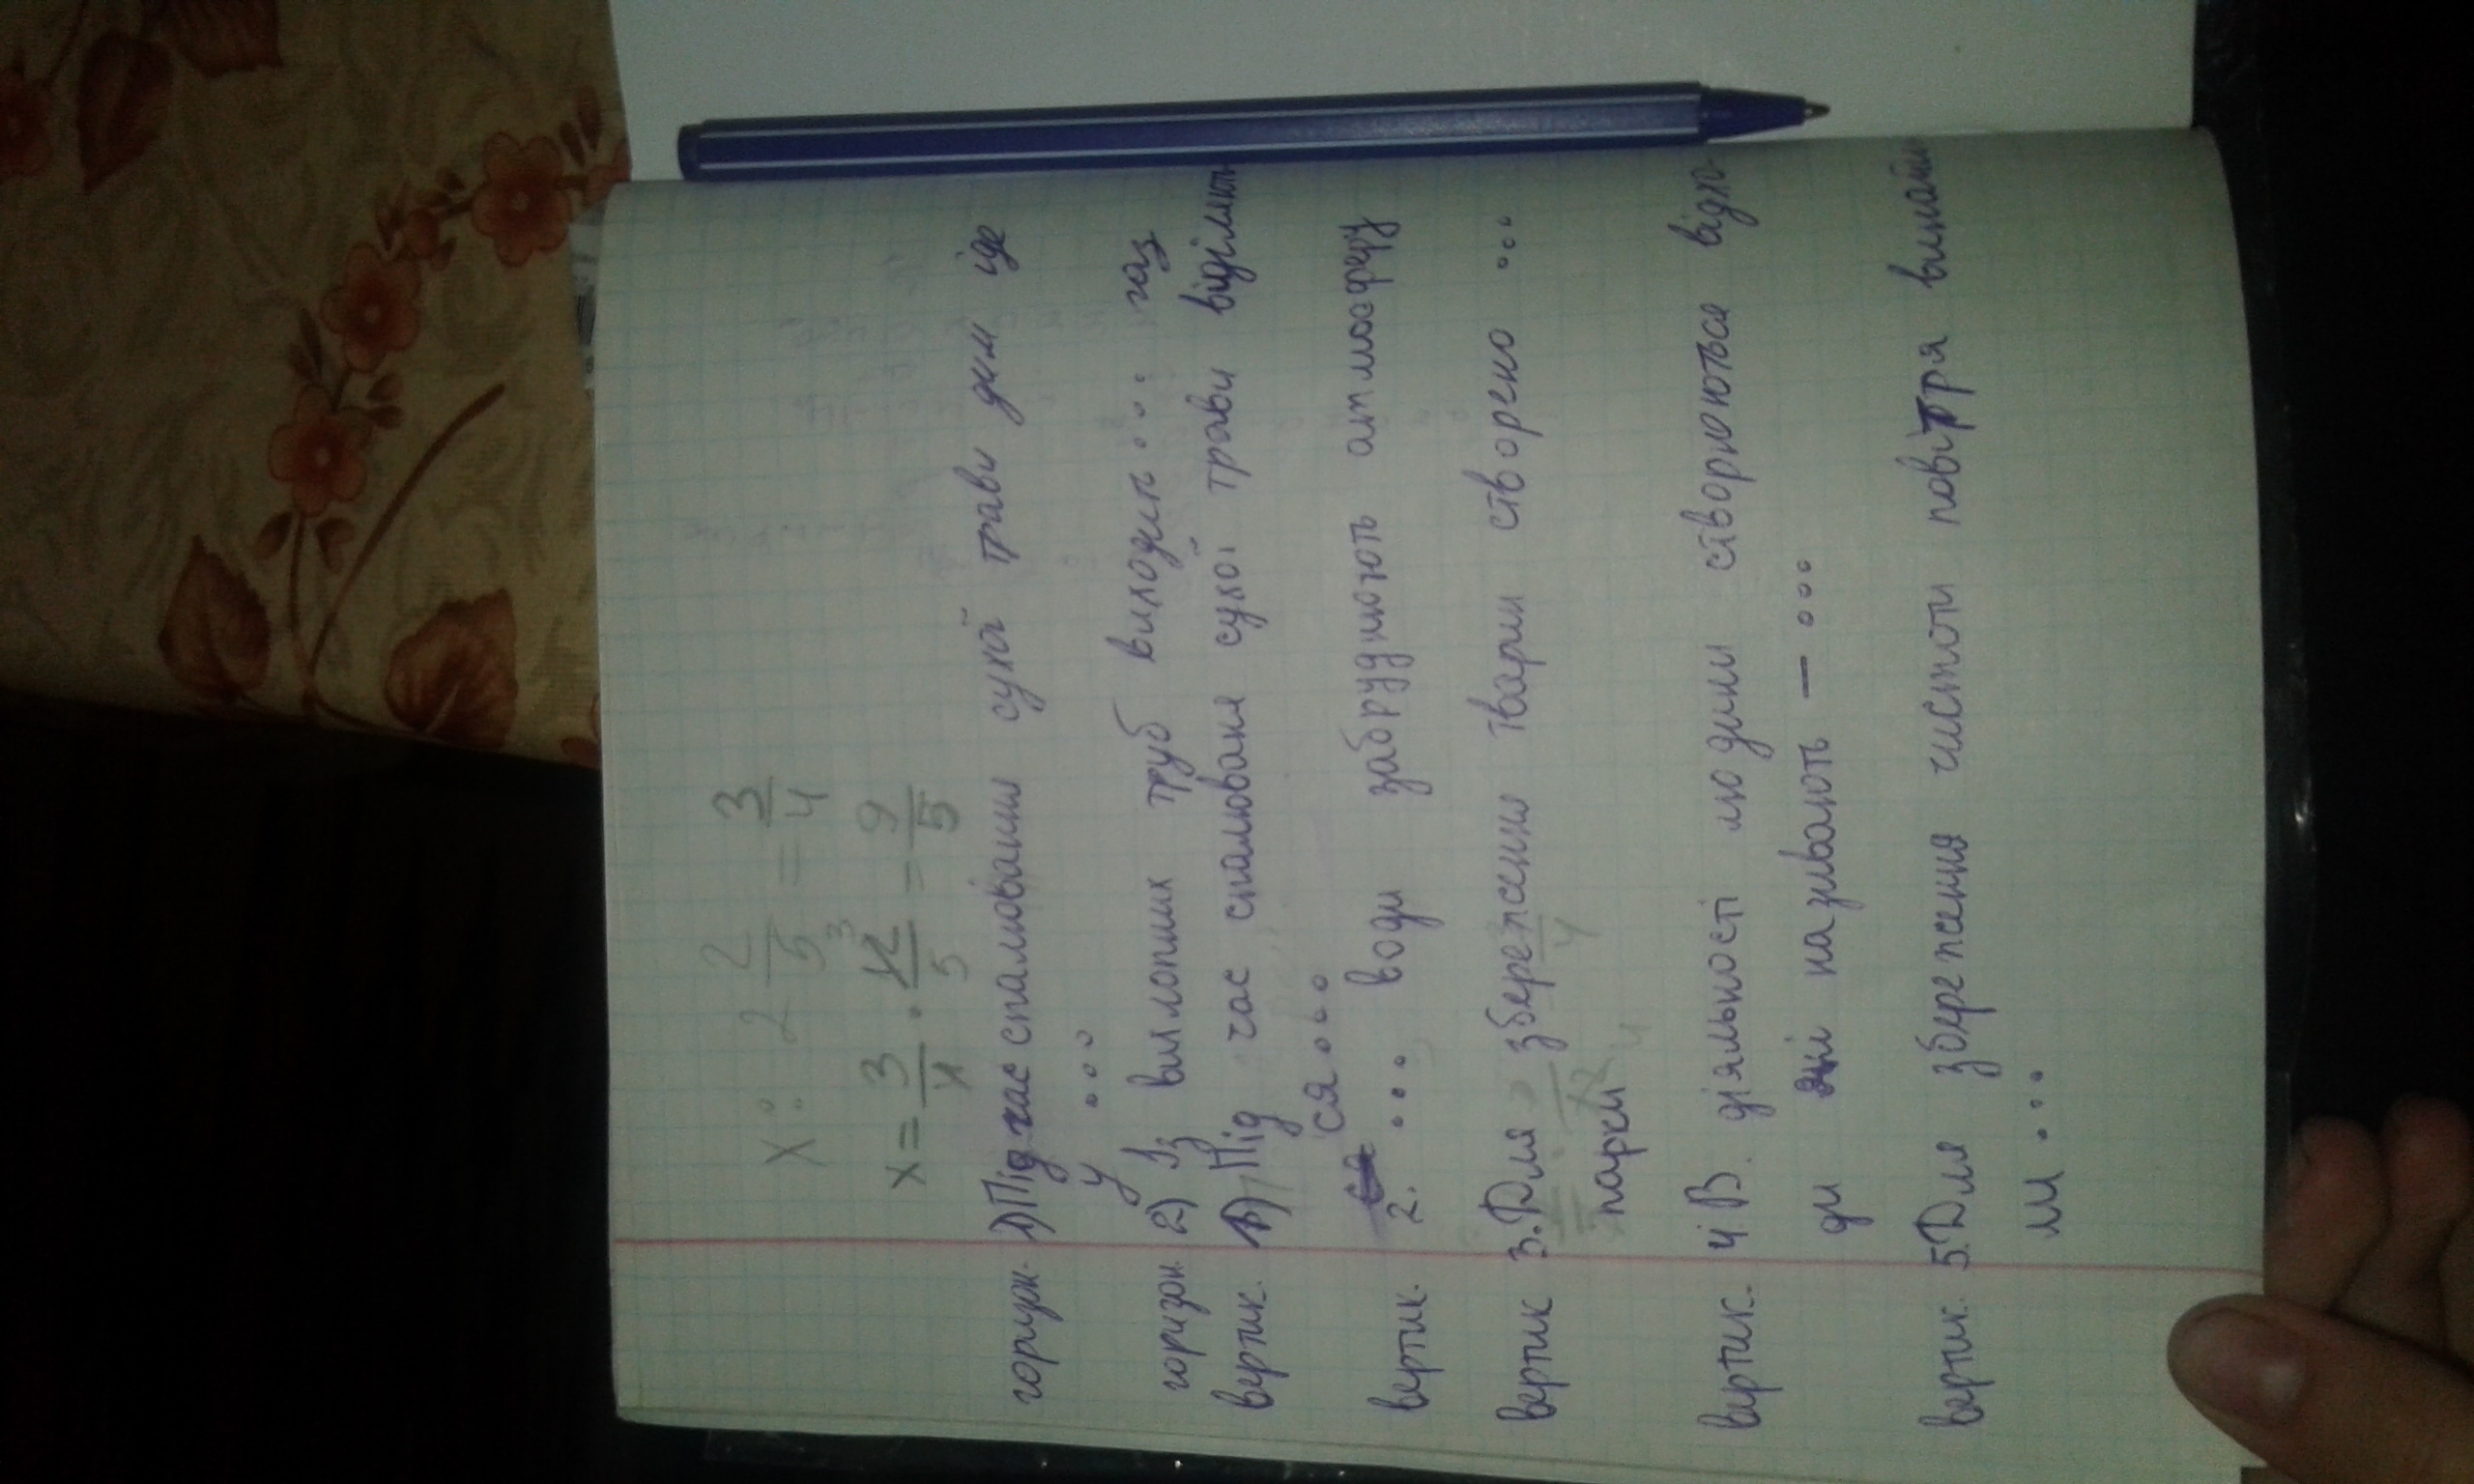 x : 2 2/5 = 3/4
x = 3/4 · 12/5 3 = 9/5
горизон. 1) Під час спалювання сухій трави дим іде
у ...
горизон. 2) Із вихлопних труб виходить ... газ
вертик. 1) Під час спалювання сухої трави виділяють
ся ...
вертик. 2. ... води забруднюють атмосферу
вертик 3. Для збереження тварин створено ...
парки
вертик. 4 В діяльності людини створюються відхо
ди які називають – ...
вертик. 5. Для збереження чистоти повітря винайш
ли ...